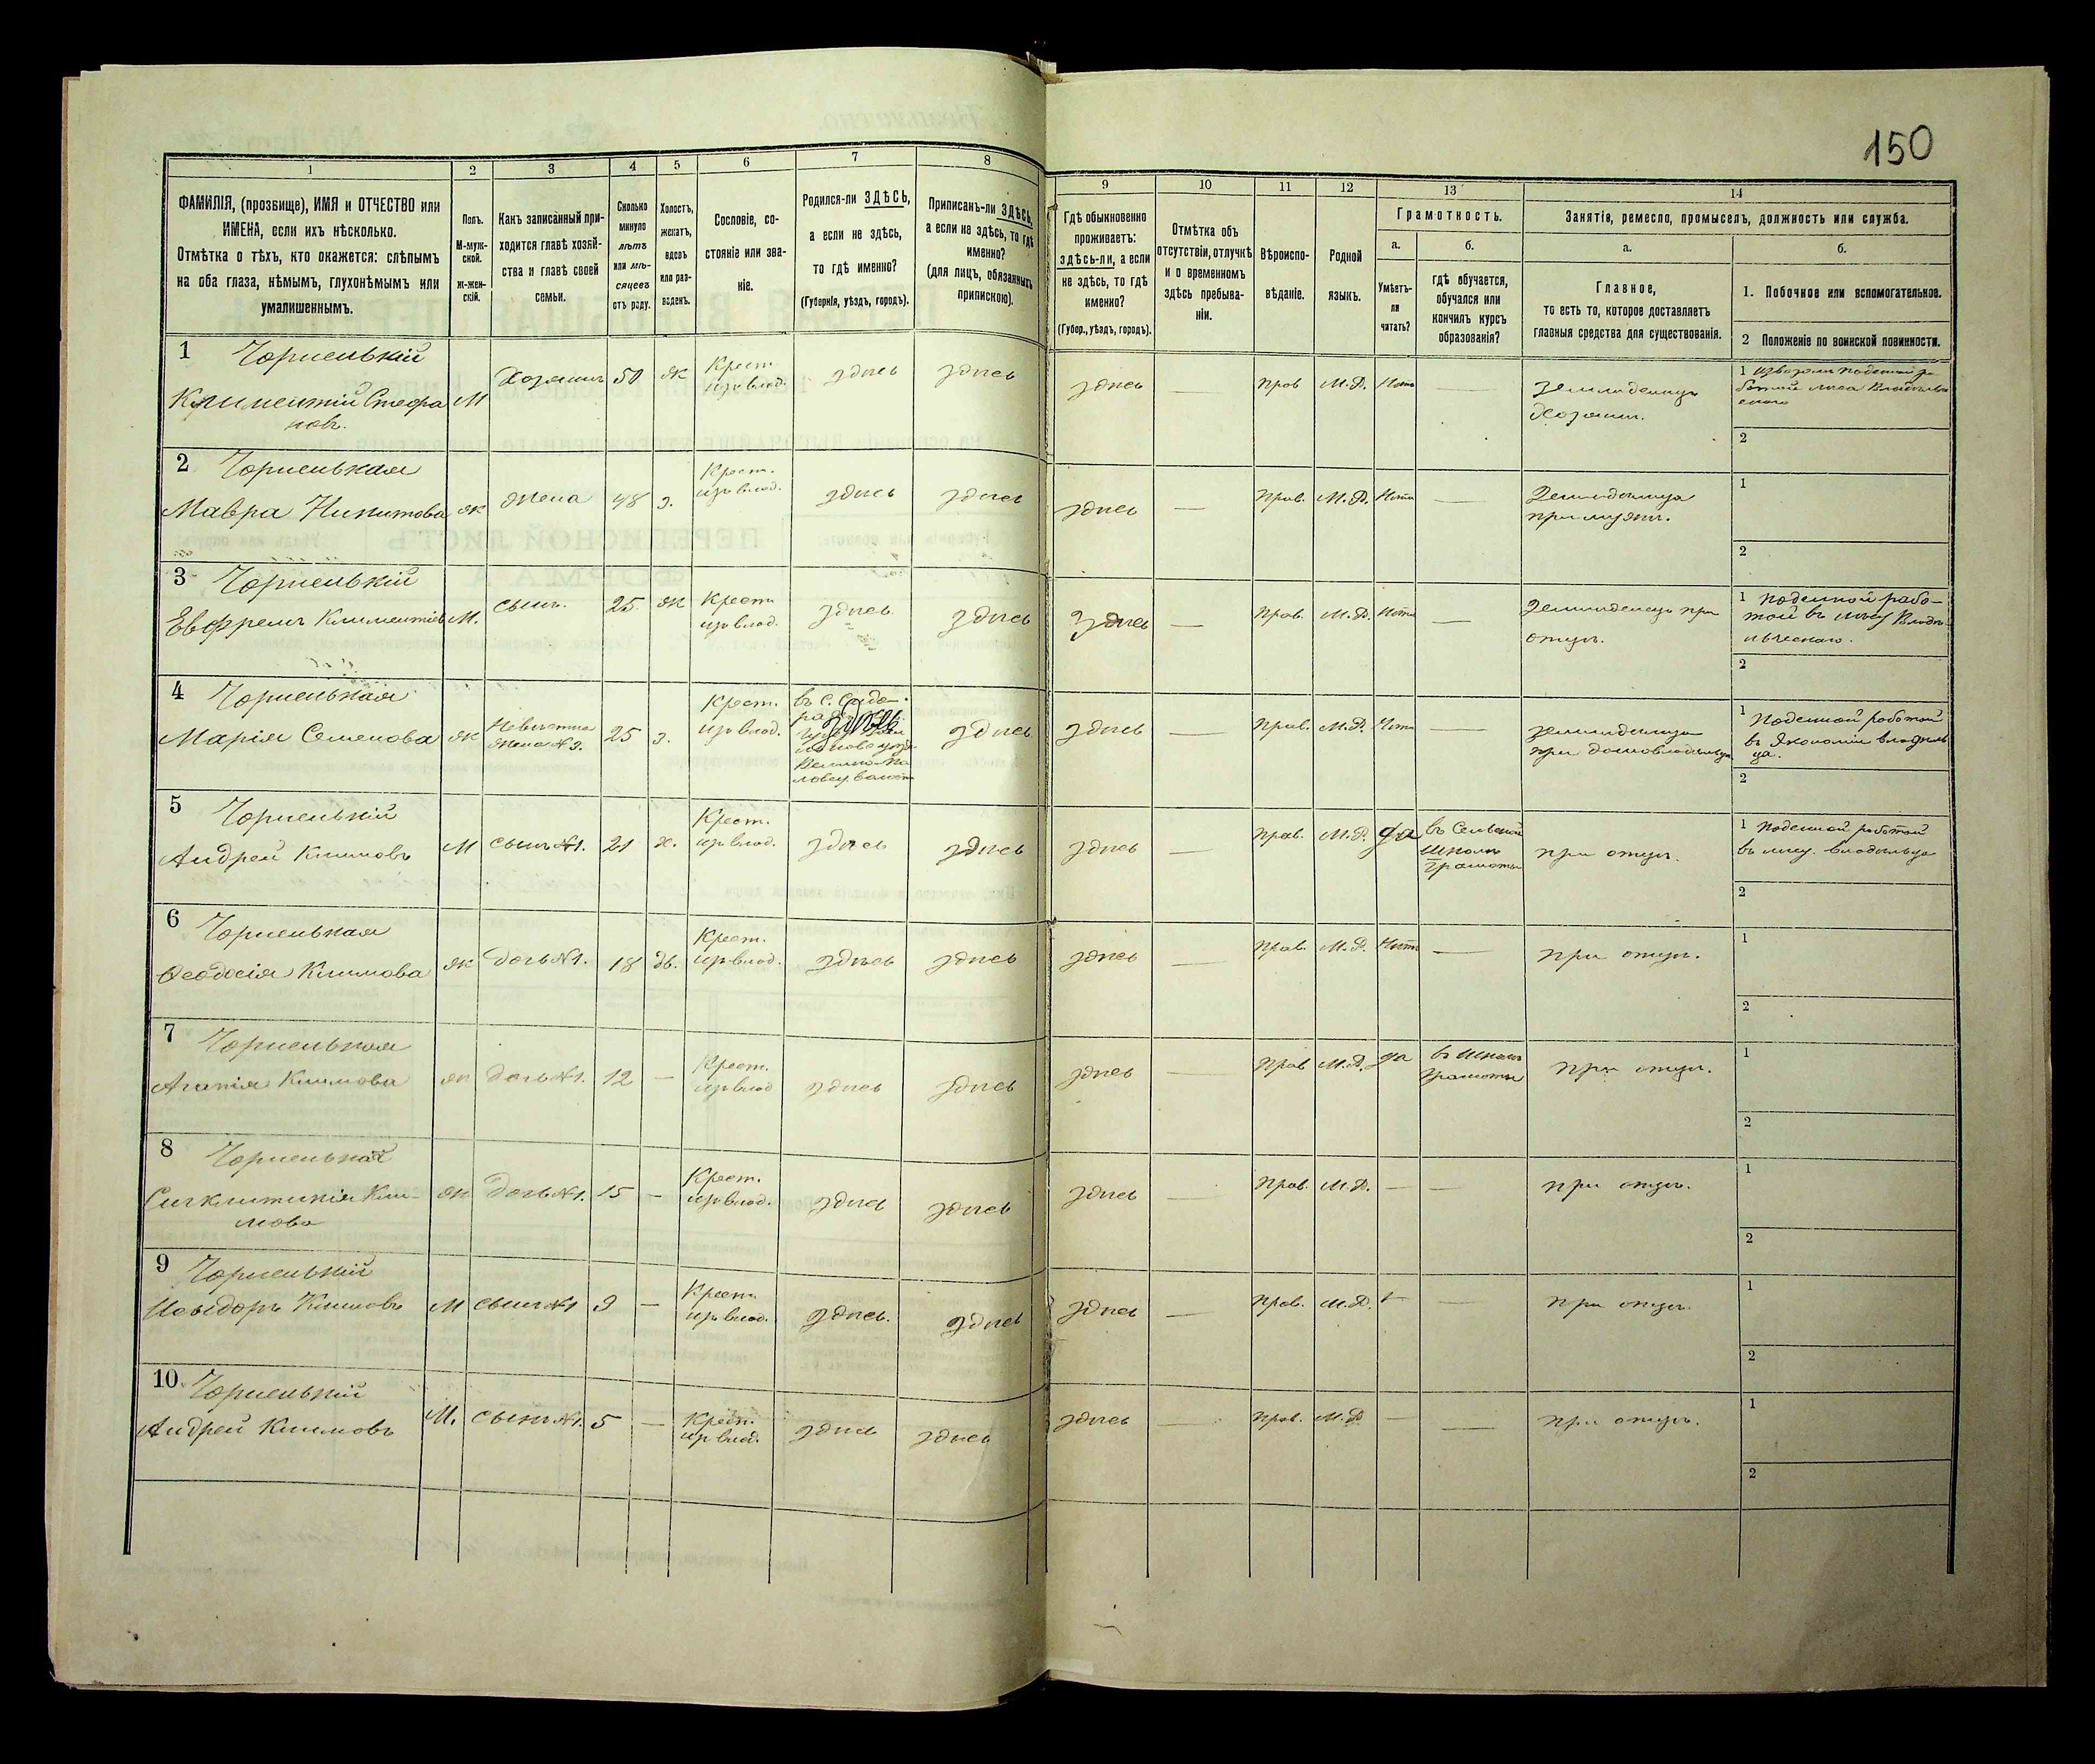 150
1
2
3
4
5
6
7
8
9
10
11
12
13
14
ФАМИЛІЯ, (прозвище), ИМЯ и ОТЧЕСТВО или
ИМЕНА, если ихъ нѣсколько.
Отмѣтка о тѣхъ, кто окажется: слѣпымъ
на оба глаза, нѣмымъ, глухонѣмымъ или
умалишеннымъ.
Полъ.
М-муж-
ской.
Ж-жен-
скій.
Какъ записанный при-
ходится главѣ хозяй-
ства и главѣ своей
семьи.
Сколько
минуло
лѣтъ
или мѣ-
сяцевъ
отъ роду.
Холостъ,
женатъ,
вдовъ
или раз-
веденъ.
Сословіе, со-
стояніе или зва-
ніе.
Родился-ли ЗДѢСЬ,
а если не здѣсь,
то гдѣ именно?
(Губернія, уѣздъ, городъ).
Приписанъ-ли ЗДѢСЬ,
а если не здѣсь, то гдѣ
именно?
(для лицъ, обязанныхъ
припискою).
Гдѣ обыкновенно
проживаетъ:
здѣсь-ли, а если
не здѣсь, то гдѣ
именно?
(Губер., уѣздъ, городъ).
Отмѣтка объ
отсутствіи, отлучкѣ
и о временномъ
здѣсь пребыва-
ніи.
Вѣроиспо-
вѣданіе.
Родной
языкъ.
Грамотность.
а.
Умѣетъ-
ли
читать?
б.
гдѣ обучается,
обучался или
кончилъ курсъ
образованія?
Занятіе, ремесло, промыселъ, должность или служба.
а.
Главное,
то есть то, которое доставляетъ
главныя средства для существованія.
б.
1. Побочное или вспомогательное.
2 Положеніе по воинской повинности.
1 Чорненькій
Климентій Стефа
новъ.
М Хозяинъ 50 ж Крест. изъ влад. здѣсь здѣсь здѣсь — Прав М.Р. Нѣтъ —
Земледелецъ
Хозяинъ.
1
2
2 Чорненькая
Мавра Никитова ж жена 48 з. Крест. изъ влад. здѣсь здѣсь здѣсь — Прав. М.Р. Нѣтъ —
Земледелица
при мужѣ.
1
2
3 Чорненькій
Евфремъ Климентіев М. сынъ. 25 ж Крест. изъ влад. здѣсь здѣсь здѣсь — Прав. М.Р. Нѣтъ —
Земледелецъ при
отцѣ.
1 поденной рабо-
той въ лѣсу Владѣ-
льческаго.
2
4 Чорненькая
Марія Семенова ж Невѣстка жена №3. 25 з. Крест. изъ влад. здѣсь здѣсь — Прав. М.Р. Нѣтъ —
Земледелица
при домовладѣльцѣ
1 Поденной работой
въ Экономіи владѣль
ца.
2
5 Чорненькій
Андрей Климовъ М сынъ №1. 21 х. Крест. изъ влад. здѣсь здѣсь здѣсь — Прав. М.Р. да
въ Сельской
школѣ
грамоты
при отцѣ.
1 поденной работой
въ лѣсу. владѣльца
2
6 Чорненькая
Феодосія Климова ж дочь №1. 18 дѣ. Крест. изъ влад. здѣсь здѣсь здѣсь — Прав. М.Р. Нѣтъ — при отцѣ.
1
2
7 Чорненькая
Агапія Климова ж дочь №1. 12 — Крест. изъ влад здѣсь здѣсь здѣсь — Прав М.Р. да
въ школѣ
грамоты
при отцѣ.
1
2
8 Чорненькая
Синклитикія Кли-
мова
ж дочь №1. 15 — Крест. изъ влад. здѣсь здѣсь здѣсь — Прав. М.Р. — — при отцѣ.
1
2
9 Чорненькій
Исидоръ Климовъ М сынъ №1 9 — Крест. изъ влад. здѣсь. здѣсь здѣсь — Прав. М.Р. — при отцѣ.
1
2
10 Чорненькій
Андрей Климовъ М. сынъ №1. 5 — Крест. изъ влад. здѣсь здѣсь здѣсь — Прав. М.Р. — — при отцѣ.
1
2